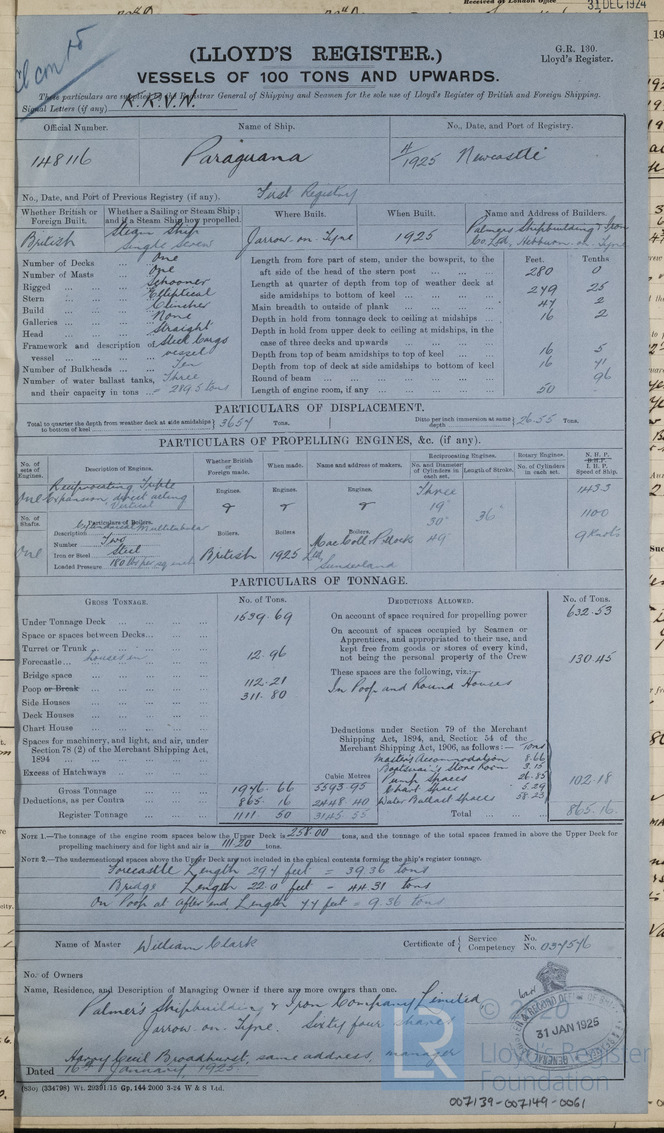 Received at London Office
31 DEC 1924
(LLOYD'S REGISTER.)
G.R. 130.
Lloyd's Register.
VESSELS OF 100 TONS AND UPWARDS.
These particulars are supplied by the Registrar General of Shipping and Seamen for the sole use of Lloyd's Register of British and Foreign Shipping.
Signal Letters (if any) K.R.V.W.
Official Number. Name of Ship. No., Date, and Port of Registry.
148116 Paraguana 4/1925 Newcastle
No., Date, and Port of Previous Registry (if any). First Registry
Whether British or Foreign Built. Whether a Sailing or Steam Ship; and if a Steam Ship how propelled. Where Built. When Built. Name and Address of Builders.
British Steam Ship Single Screw Jarrow-on-Tyne 1925 Palmers Shipbuilding & Iron Co. Ltd, Hebburn-on-Tyne
Number of Decks One
Number of Masts One
Rigged Schooner
Stern Elliptical
Build Clencher
Galleries None
Head Straight
Framework and description of vessel Steel Cargo vessel
Number of Bulkheads Ten
Number of water ballast tanks, and their capacity in tons Three 289.5 tons
Feet. Tenths
Length from fore part of stem, under the bowsprit, to the aft side of the head of the stern post 280 0
Length at quarter of depth from top of weather deck at side amidships to bottom of keel 279 25
Main breadth to outside of plank 47 2
Depth in hold from tonnage deck to ceiling at midships 16 2
Depth in hold from upper deck to ceiling at midships, in the case of three decks and upwards
Depth from top of beam amidships to top of keel 16 5
Depth from top of deck at side amidships to bottom of keel 16 41
Round of beam 96
Length of engine room, if any 50 -
PARTICULARS OF DISPLACEMENT.
Total to quarter the depth from weather deck at side amidships to bottom of keel 3654 Tons. Ditto per inch immersion at same depth 26.55 Tons.
PARTICULARS OF PROPELLING ENGINES, &c. (if any).
No. of sets of Engines. Description of Engines. Whether British or Foreign made. When made. Name and address of makers. Reciprocating Engines. No. and Diameter of Cylinders in each set. Length of Stroke. Rotary Engines. No. of Cylinders in each set. N.H.P. B.H.P. I.H.P. Speed of Ship.
One Reciprocating Triple Expansion direct acting Vertical Engines. Engines. Engines. Three 19" 30" 49" 36" 143.3
1100
9 Knots
No. of Shafts. Particulars of Boilers.
One Description Cylindrical Multitubular
Number Two
Iron or Steel Steel
Loaded Pressure 180 lbs per sq inch
Boilers. British Boilers 1925 Boilers. MacColl & Pollock Ltd, Sunderland
PARTICULARS OF TONNAGE.
GROSS TONNAGE. No. of Tons. DEDUCTIONS ALLOWED. No. of Tons.
Under Tonnage Deck 1539.69
Space or spaces between Decks
Turret or Trunk
Forecastle 12.96
Bridge space
Poop or Break 112.21
Side Houses 311.80
Deck Houses
Chart House
Spaces for machinery, and light, and air, under Section 78 (2) of the Merchant Shipping Act, 1894
Excess of Hatchways
Cubic Metres
Gross Tonnage 1976.66 5593.95
Deductions, as per Contra 865.16 2448.40
Register Tonnage 1111 50 3145.55
On account of space required for propelling power 632.53
On account of spaces occupied by Seamen or Apprentices, and appropriated to their use, and kept free from goods or stores of every kind, not being the personal property of the Crew 130.45
These spaces are the following, viz.:-
In Poop and Round Houses
Deductions under Section 79 of the Merchant Shipping Act, 1894, and Section 54 of the Merchant Shipping Act, 1906, as follows:— Tons
Master's Accommodation 8.66
Boatswain's Store Room 3.15
Pump Spaces 26.85
Chart Space 5.29
Water Ballast Spaces 58.23
102.18
Total 865.16.
NOTE 1.—The tonnage of the engine room spaces below the Upper Deck is 258.00 tons, and the tonnage of the total spaces framed in above the Upper Deck for propelling machinery and for light and air is 111.20 tons.
NOTE 2.—The undermentioned spaces above the Upper Deck are not included in the cubical contents forming the ship's register tonnage.
Forecastle Length 29.4 feet = 39.36 tons
Bridge Length 22.0 feet = 44.31 tons
On Poop at After end, Length 4.4 feet = 9.36 tons
Name of Master William Clark Certificate of Service Competency No. No. 034546
No. of Owners
Name, Residence, and Description of Managing Owner if there are more owners than one.
Palmer's Shipbuilding & Iron Company Limited
Jarrow-on-Tyne. Sixty four shares
Harry Cecil Broadhurst, same address, manager
Dated 16th January 1925
31 JAN 1925
(830) (334798) Wt. 29391/15 Gp. 144 2000 3-24 W & S Ltd.
LR
© 2020
Lloyd's Register
Foundation
007139-007149-0061